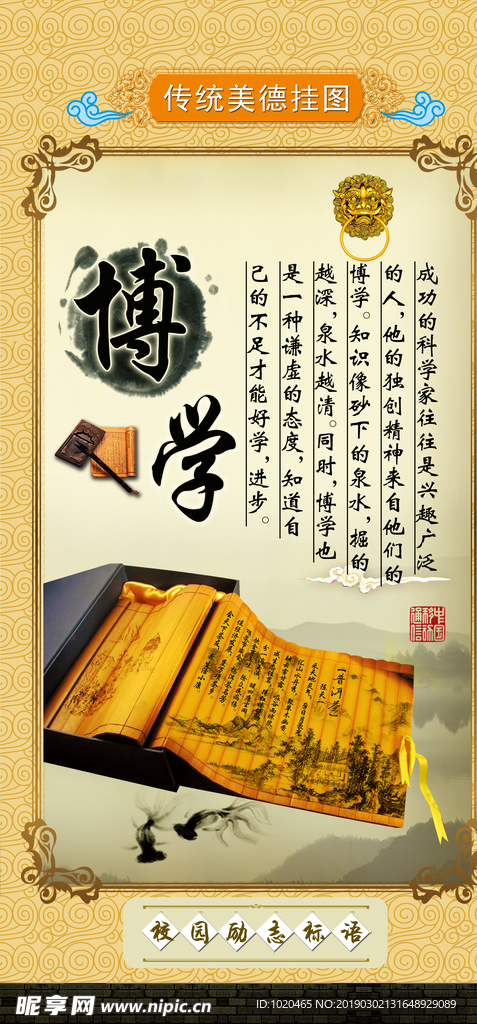 传统美德挂图
博
学
成功的科学家往往是兴趣广泛
的人，他的独创精神来自他们的
博学。知识像砂下的泉水，掘的
越深，泉水越清。同时，博学也
是一种谦虚的态度，知道自
己的不足才能好学，进步。
【普洱茶】
校园励志标语
昵享网 www.nipic.cn
ID:1020465 NO:20190302131648929089